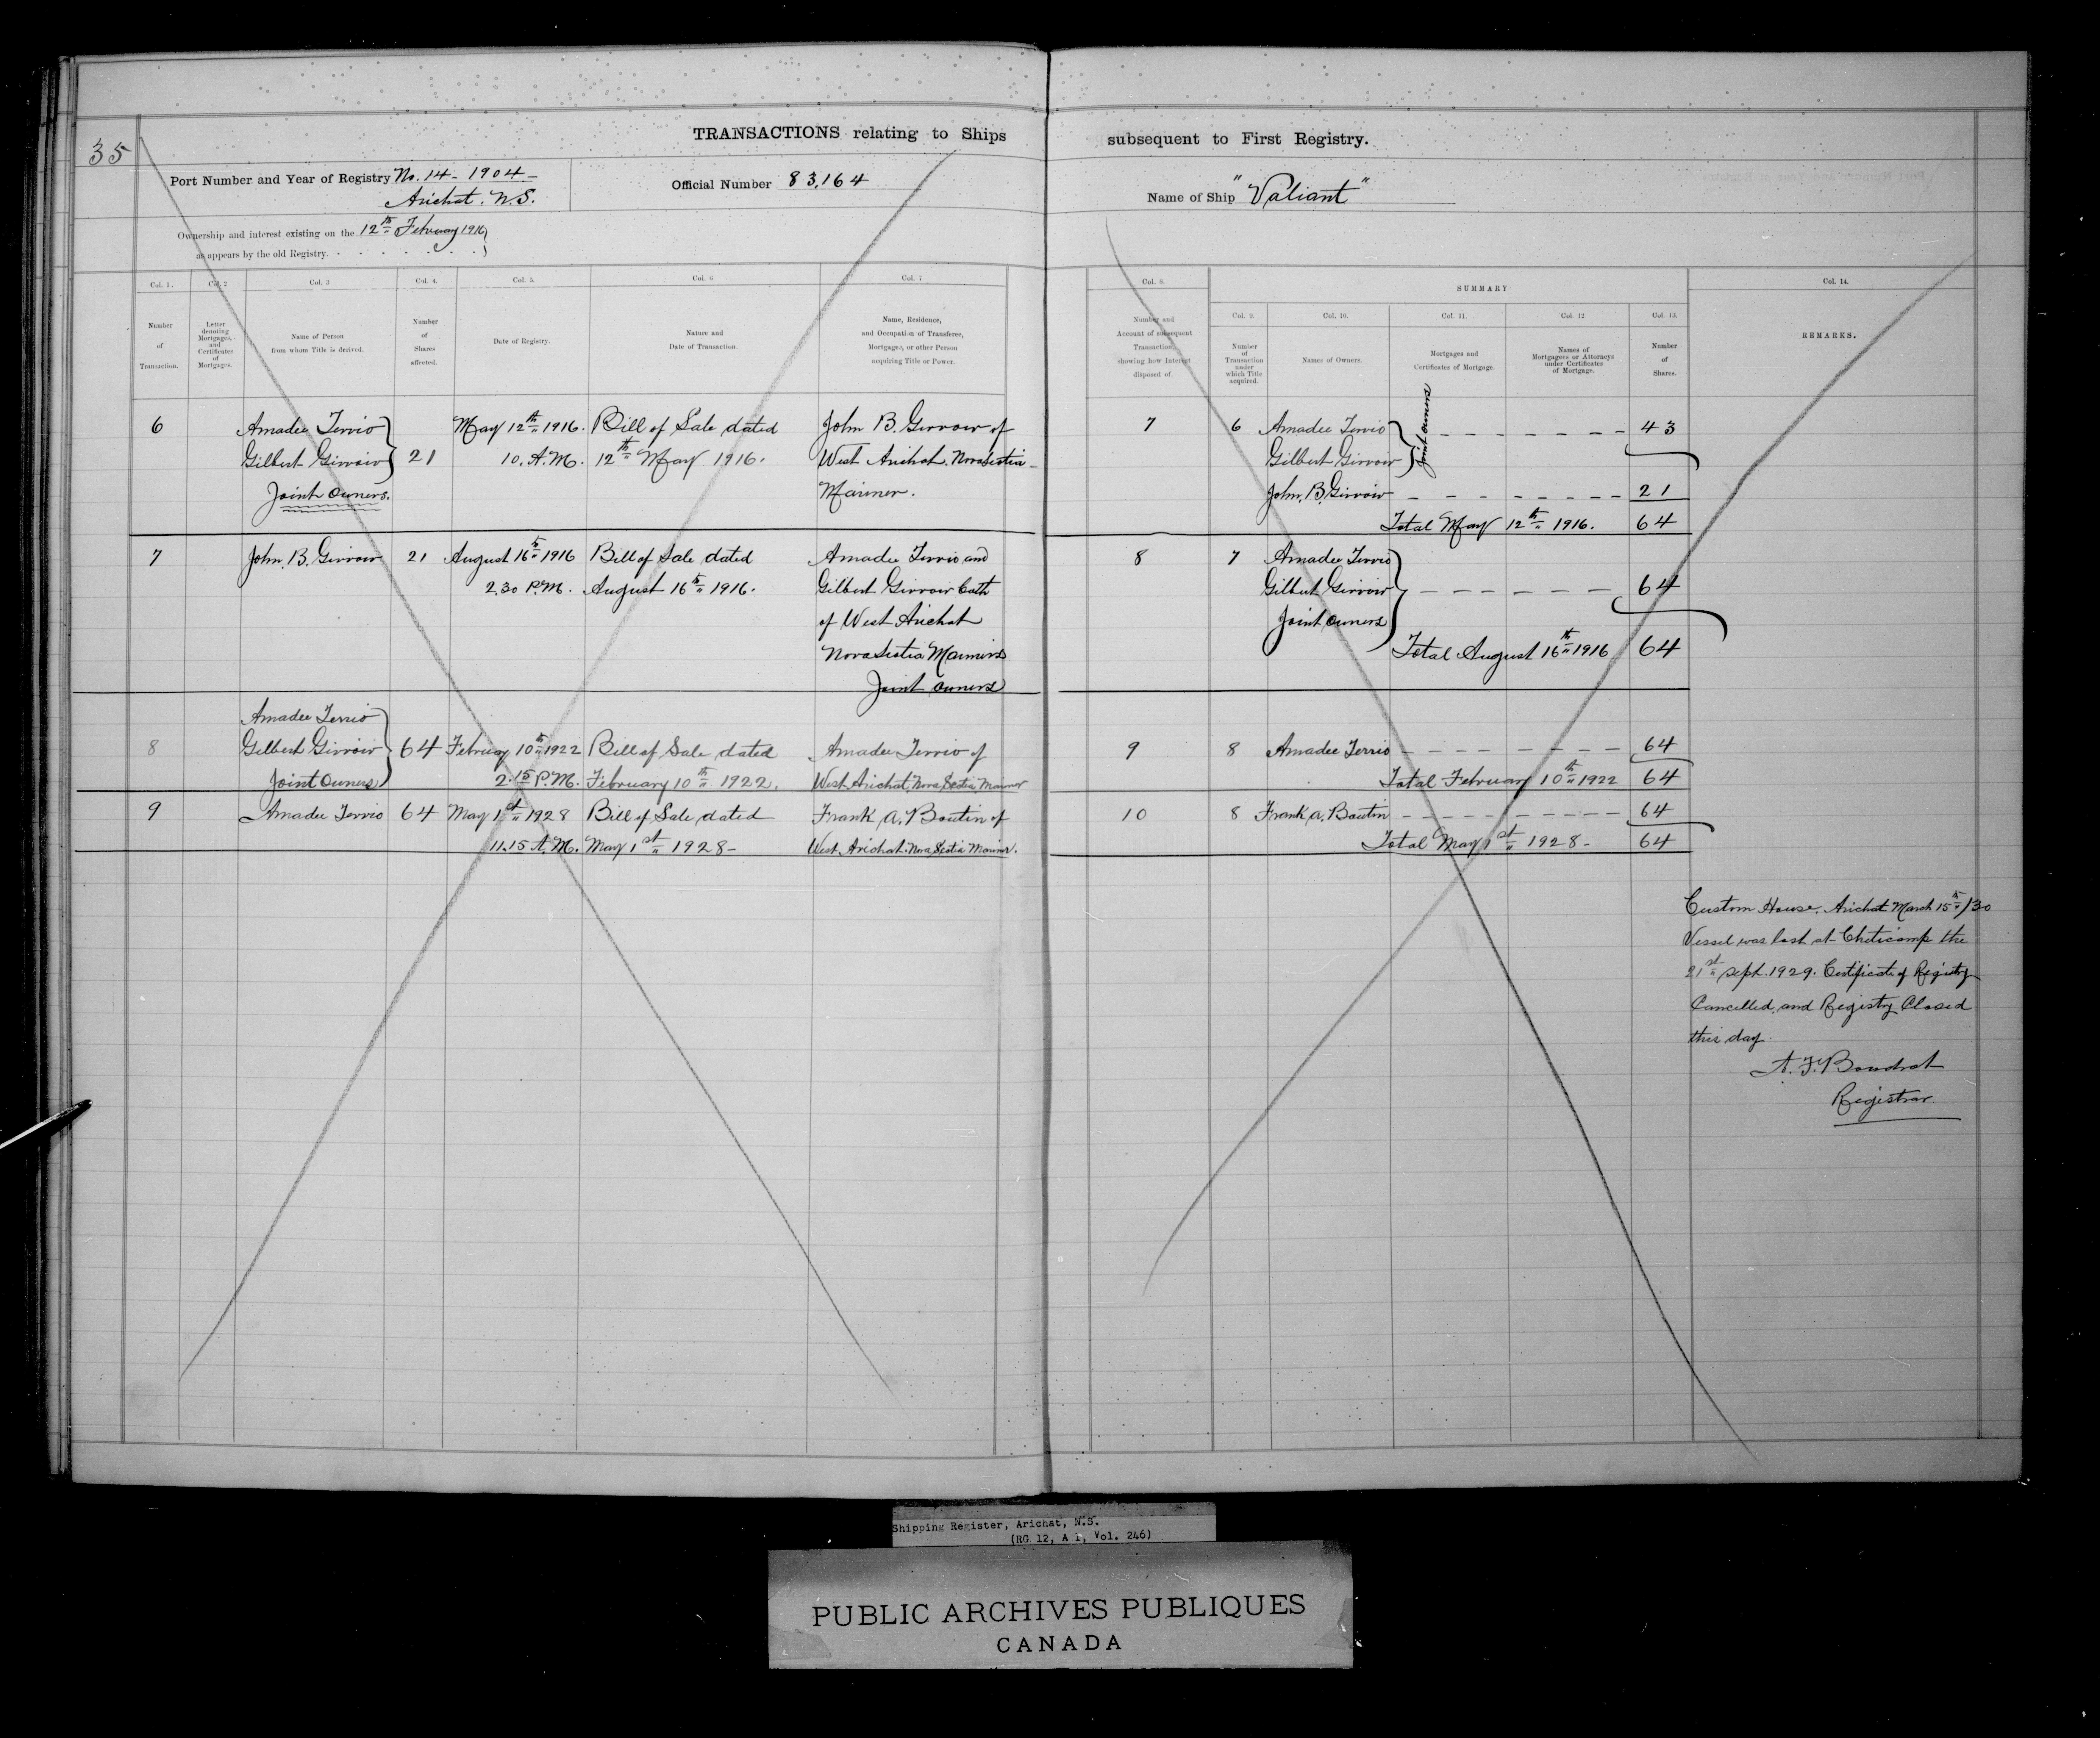 35
TRANSACTIONS relating to Ships subsequent to First Registry.
Port Number and Year of Registry No. 14 - 1904 -
Arichat. N.S.
Official Number 83,164
Name of Ship "Valiant"
Ownership and interest existing on the 12th February 1916
as appears by the old Registry.
Col. 1. Col. 2 Col. 3 Col. 4. Col. 5. Col. 6 Col. 7
Number of Transaction.
Letter denoting Mortgages, and Certificates of Mortgages.
Name of Person from whom Title is derived.
Number of Shares affected.
Date of Registry.
Nature and Date of Transaction.
Name, Residence, and Occupation of Transferee, Mortgage, or other Person acquiring Title or Power.
6 Amadee Terrio May 12th 1916. Bill of Sale dated John B. Girroir of
Gilbert Girroir 21 10. A.M. 12th May 1916. West Arichat, Nova Scotia
Joint Owners. Mariner.
7 John. B. Girroir 21 August 16th 1916 Bill of Sale dated Amadee Terrio and
2.30 P.M. August 16th 1916. Gilbert Girroir both
of West Arichat
Nova Scotia Mariners
Joint owners
Amadee Terrio
8 Gilbert Girroir 64 February 10th 1922 Bill of Sale dated Amadee Terrio of
Joint Owners 2.15 P.M. February 10th 1922. West Arichat, Nova Scotia, Mariner
9 Amadee Terrio 64 May 1st 1928 Bill of Sale dated Frank A. Boutin of
11.15 A.M. May 1st 1928- West Arichat. Nova Scotia Mariner.
Col. 8. SUMMARY Col. 14.
Col. 9. Col. 10. Col. 11. Col. 12 Col. 13.
Number and Account of subsequent Transaction, showing how Interest disposed of.
Number of Transaction under which Title acquired.
Names of Owners.
Mortgages and Certificates of Mortgage.
Names of Mortgagees or Attorneys under Certificates of Mortgage.
Number of Shares.
REMARKS.
7 6 Amadee Terrio Joint owners 43
Gilbert Girroir
John. B. Girroir 21
Total May 12th 1916. 64
8 7 Amadee Terrio
Gilbert Girroir 64
Joint owners
Total August 16th 1916 64
9 8 Amadee Terrio 64
Total February 10th 1922 64
10 8 Frank A. Boutin 64
Total May 1st 1928 - 64
Custom House, Arichat March 15th/30
Vessel was lost at Cheticamp the
21st Sept. 1929. Certificate of Registry
Cancelled, and Registry Closed
this day.
A. F. Boudrot
Registrar
Shipping Register, Arichat, N.S.
(RG 12, A 1, Vol. 246)
PUBLIC ARCHIVES PUBLIQUES
CANADA